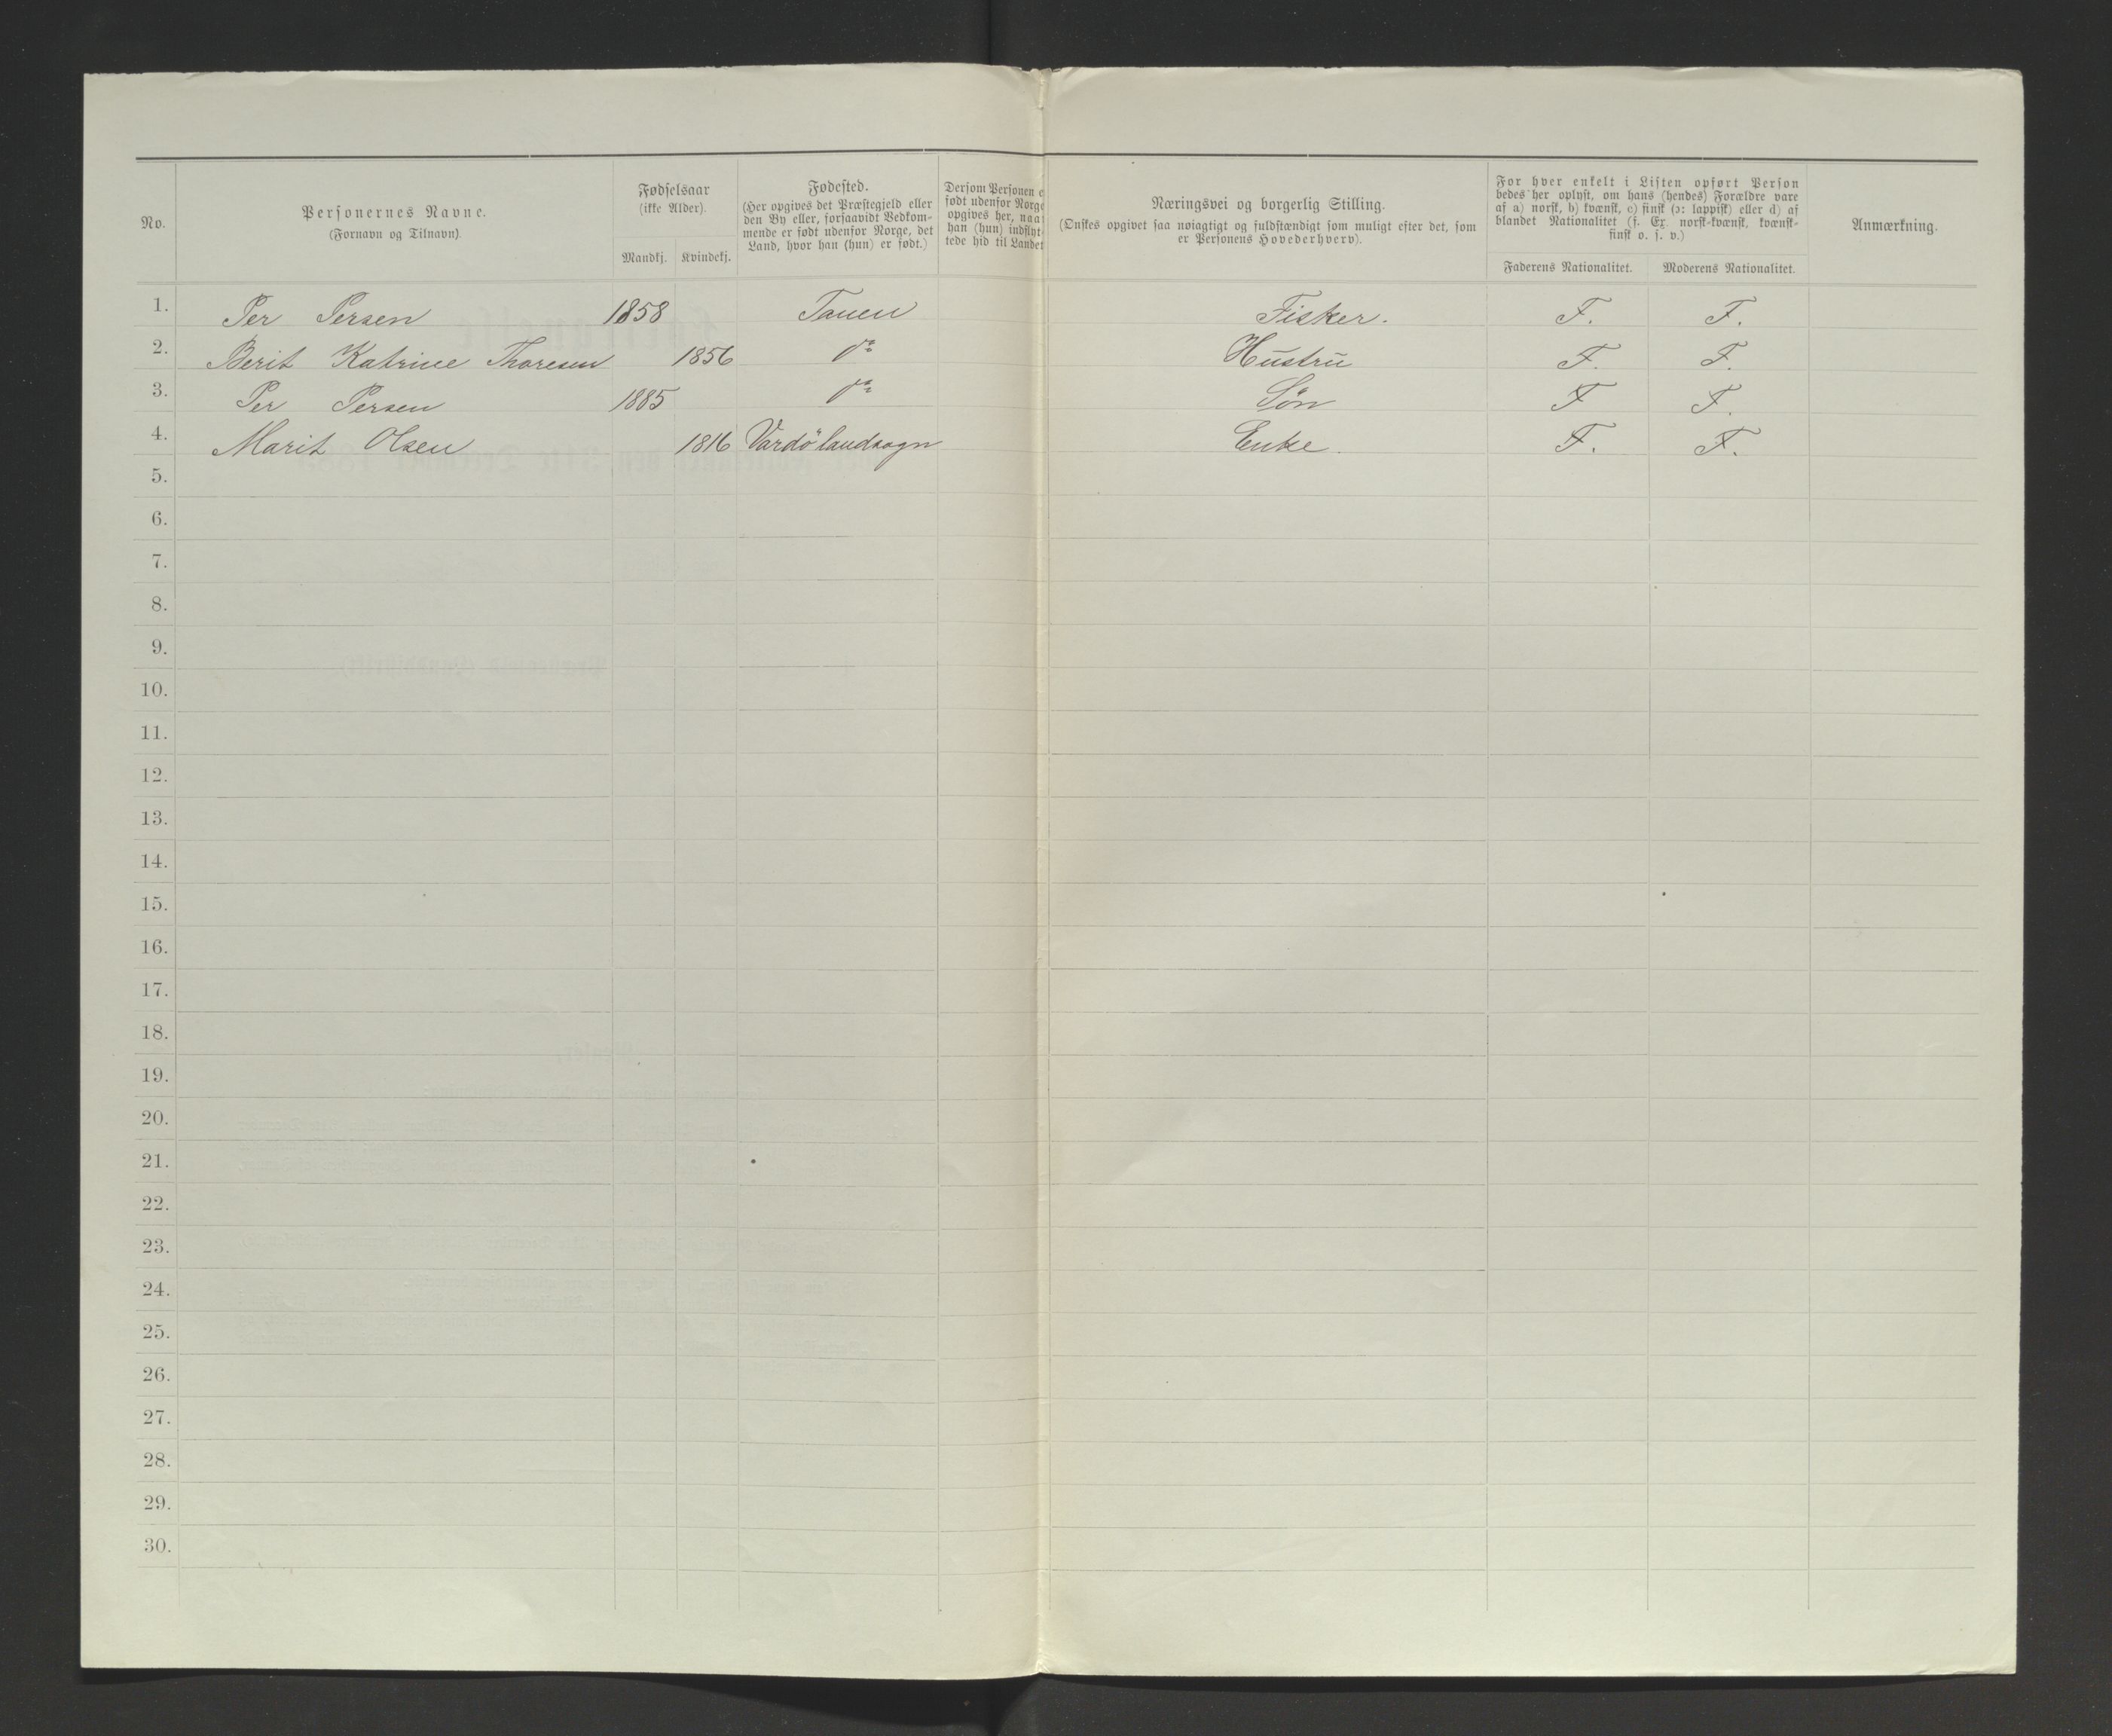 No.
Personernes Navne.
(Fornavn og Tilnavn).
Fødselsaar
(ikke Alder).
Mandkj. Kvindekj.
Fødested.
(Her opgives det Præstegjeld eller
den By eller, forsaavidt Vedkom-
mende er født udenfor Norge, det
Land, hvor han (hun) er født.)
Dersom Personen e
født udenfor Norge
opgives her, naa
han (hun) indflyt-
tede hid til Landet
Næringsvei og borgerlig Stilling.
(Ønskes opgivet saa nøiagtigt og fuldstændigt som muligt efter det, som
er Personens Hovederhverv).
For hver enkelt i Listen opført Person
bedes her oplyst, om hans (hendes) Forældre vare
af a) norsk, b) kvænsk, c) finsk (ɔ: lappisk) eller d) af
blandet Nationalitet (f. Ex. norsk-kvænsk, kvænsk-
finsk o. s. v.)
Faderens Nationalitet. Moderens Nationalitet.
Anmærkning.
1. Per Persen 1858 Tanen Fisker. F. F.
2. Berit Katrine Thoresen 1856 do Hustru F. F.
3. Per Persen 1885 do Søn F F.
4. Marit Olsen 1816 Vardö landsogn Enke. F. F.
5.
6.
7.
8.
9.
10.
11.
12.
13.
14.
15.
16.
17.
18.
19.
20.
21.
22.
23.
24.
25.
26.
27.
28.
29.
30.